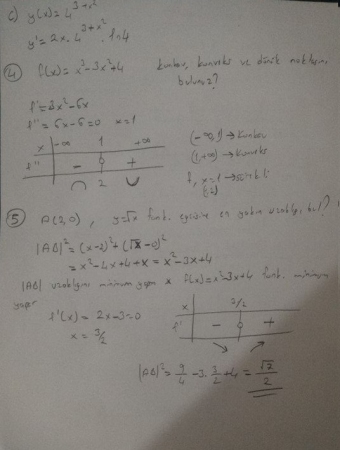 c) y(x)=4^(3+x²)
y'=2x.4^(3+x²).ln4
4) f(x)=x³-3x²+4 konkav, konveks ve dönüm noktasını
bulunuz?
f'=3x²-6x
f''=6x-6=0 x=1
x -∞ 1 +∞
f'' - 0 +
2
(-∞,1)→konkav
(1,+∞)→konveks
x=1
5) A(2,0), y=√x funk. eğrisine en yakın uzaklığı bul?
|AB|²=(x-2)²+(√x-0)²
=x²-4x+4+x=x²-3x+4
|AB| uzaklığını minimum yapan x f(x)=x²-3x+4 funk. minimum
yapar
f'(x)=2x-3=0
x=3/2
x 3/2
f' - 0 +
|AB|²=9/4-3.3/2+4=√7/2